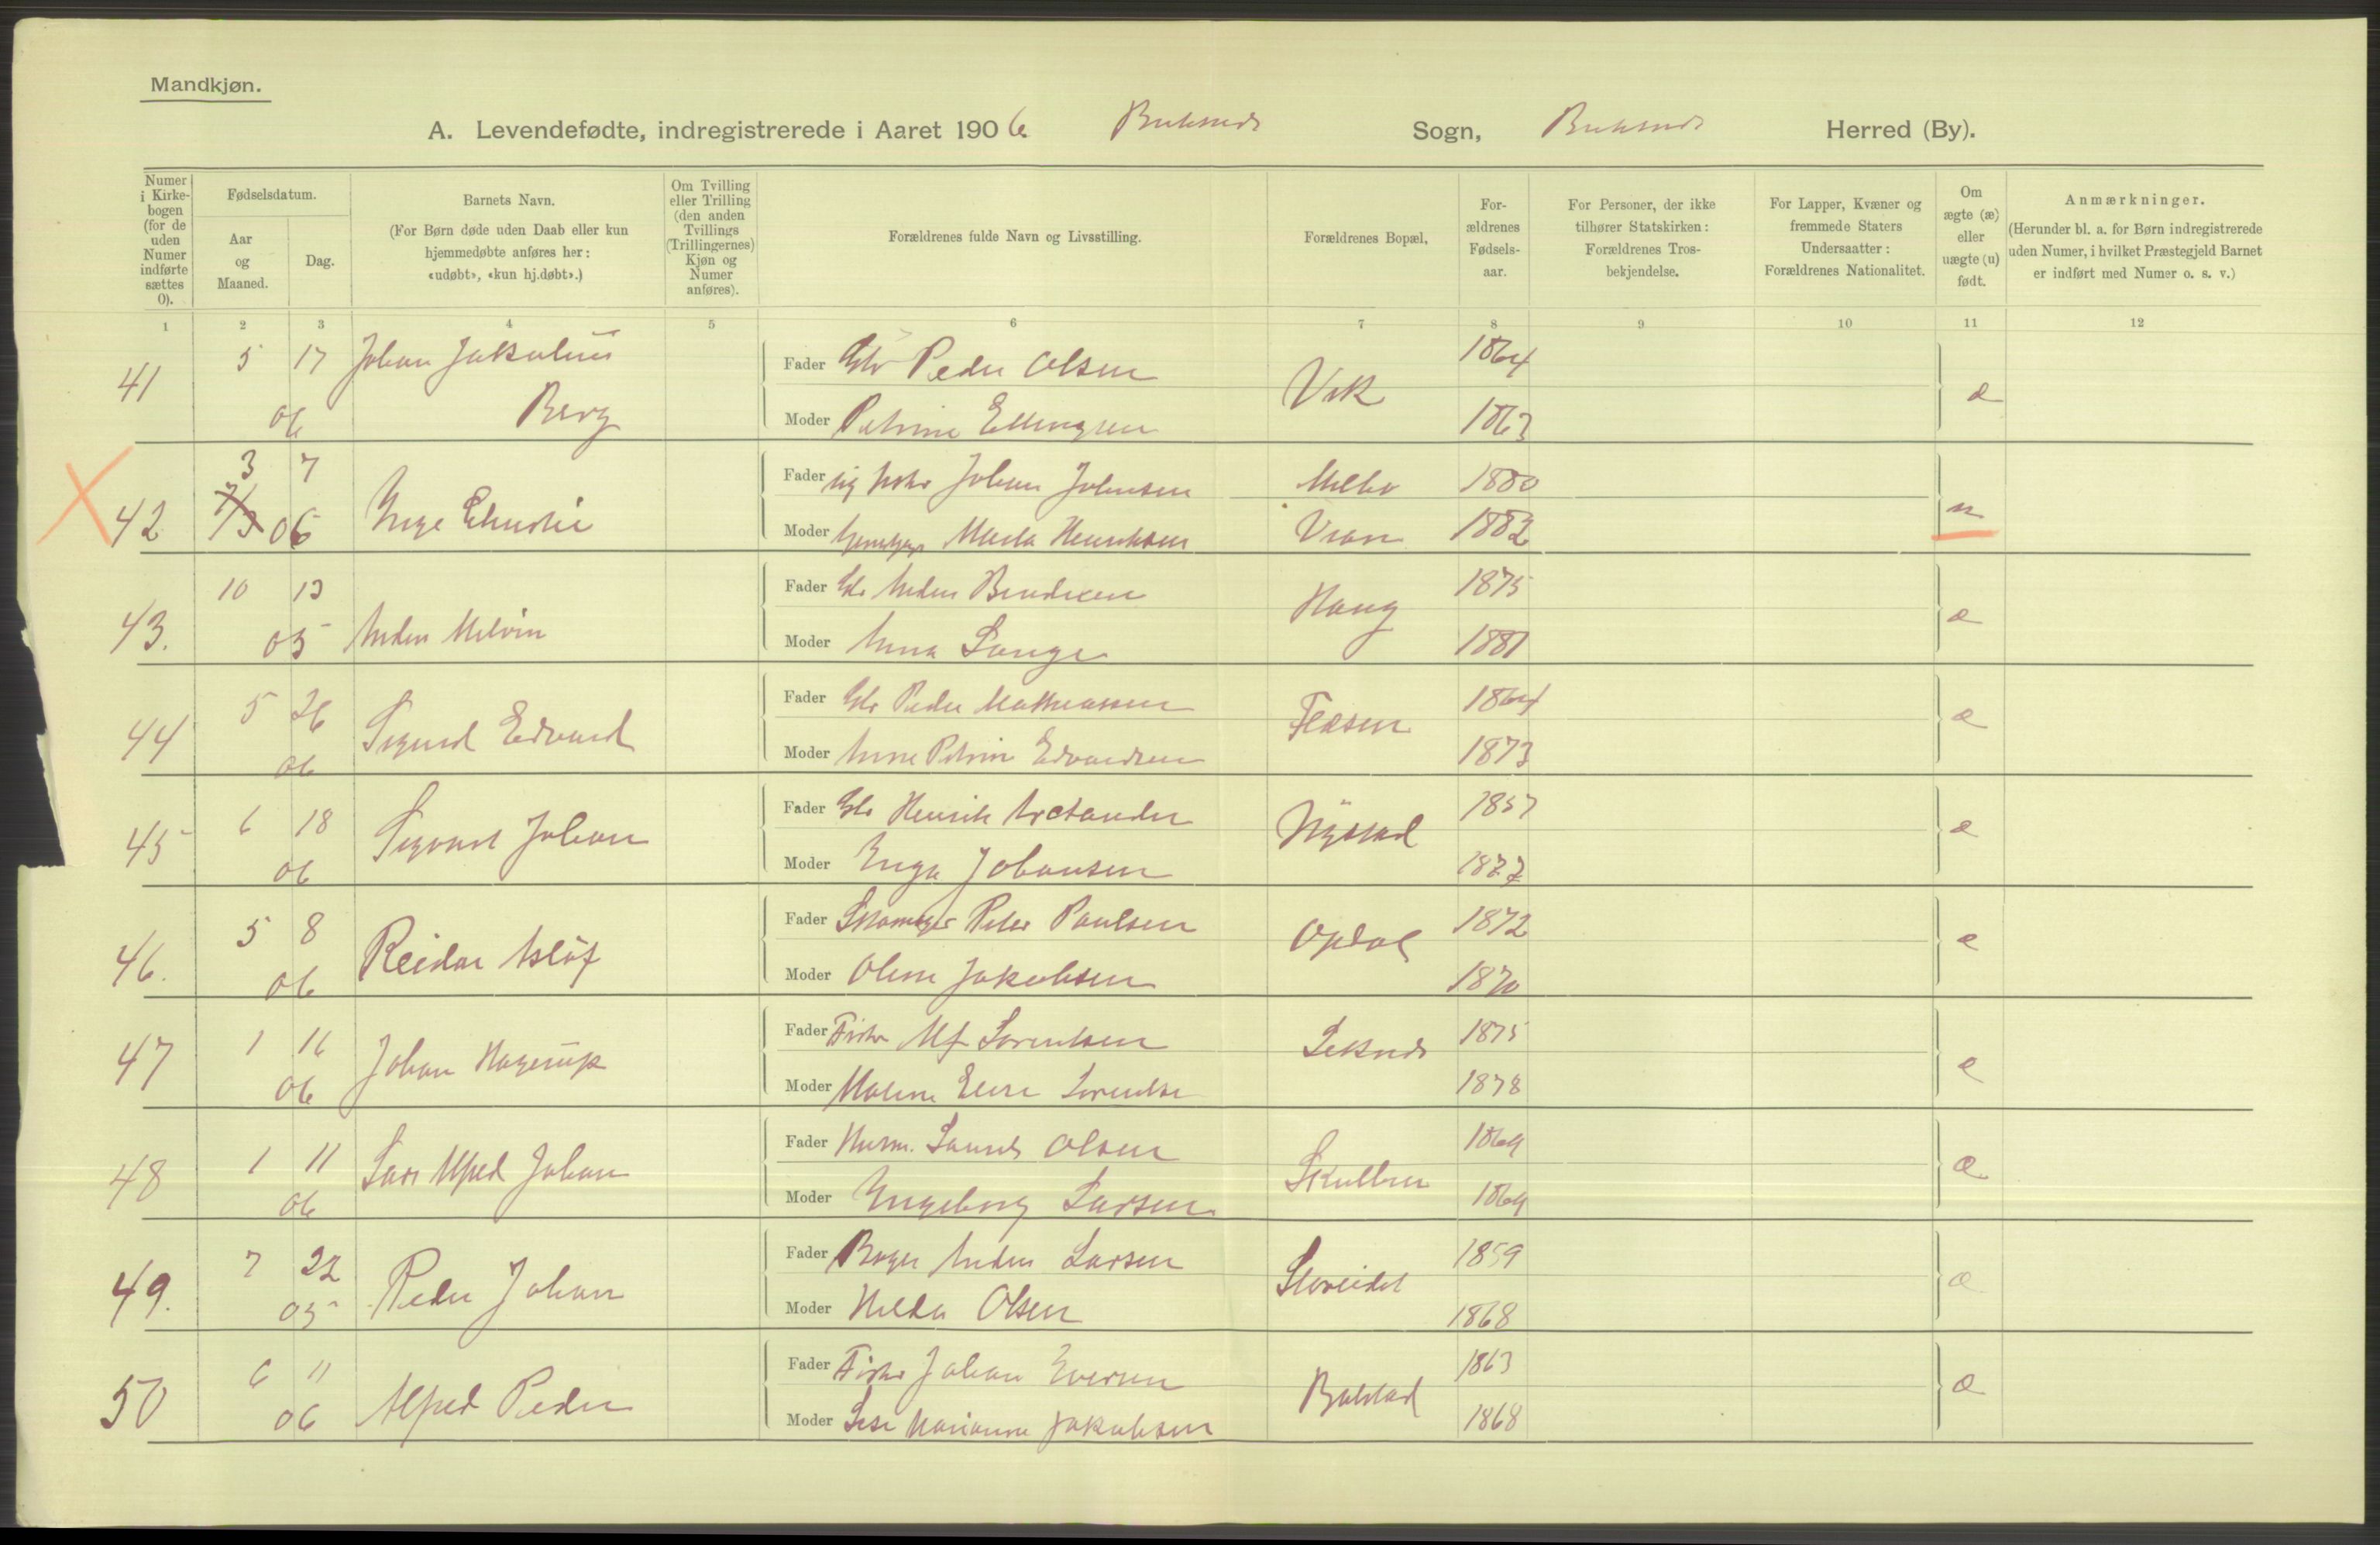 Mandkjøn.
A. Levendefødte, indregistrerede i Aaret 1906 Buksnes Sogn, Buksnes Herred (By).
Numer i Kirkebogen (for de uden Numer indførte sættes 0).
Fødselsdatum.
Aar og Maaned.
Dag.
Barnets Navn.
(For Børn døde uden Daab eller kun hjemmedøbte anføres her: «udøbt», «kun hj.døbt».)
Om Tvilling eller Trilling (den anden Tvillings (Trillingernes) Kjøn og Numer anføres).
Forældrenes fulde Navn og Livsstilling.
Forældrenes Bopæl,
Forældrenes Fødselsaar.
For Personer, der ikke tilhører Statskirken: Forældrenes Trosbekjendelse.
For Lapper, Kvæner og fremmede Staters Undersaatter: Forældrenes Nationalitet.
Om ægte (æ) eller uægte (u) født.
Anmærkninger.
(Herunder bl. a. for Børn indregistrerede uden Numer, i hvilket Præstegjeld Barnet er indført med Numer o. s. v.)
1 2 3 4 5 6 7 8 9 10 11 12
41 5 17 06 Johan Jakobus Berg
Fader Peder Olsen Vik 1864 æ
Moder Petrine Ellingsen 1863
42 3 7 06 Inge
Fader Johan Johnsen Melbo 1880 u
Moder Marla Henriksen 1882
43. 10 13 05 Anders Melvin
Fader Anders Bendixen Haug 1875 æ
Moder Anna Lange 1881
44 5 26 06 Sigurd Edvard
Fader Peder Mathiassen 1864 æ
Moder Anne Petrine Edvardsen 1873
45 6 18 06 Sigvart Johan
Fader Henrik Arctander Nystad 1857 æ
Moder Inga Johansen 1877
46. 5 8 06 Reidar Asløf
Fader Skomager Peter Paulsen Opdal 1872 æ
Moder Oline Jakobsen 1870
47 1 16 06 Johan Hagerup
Fader Fisker Alf Lorentsen Leknes 1875 æ
Moder Malene Elise Lorentsen 1878
48 1 11 06 Lars Alfred Johan
Fader Husm. Laurits Olsen Skulbru 1869 æ
Moder Ingeborg Larsen 1869
49. 7 22 05 Peder Johan
Fader Bager Anders Larsen Storeidet 1859 æ
Moder Hilda Olsen 1868
50 6 11 06 Alfred Peder
Fader Fisker Johan Iversen Balstad 1863 æ
Moder Lise Marianne Jakobsen 1868